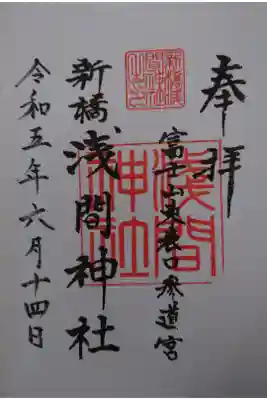 奉拝
富士山東表口参道宮
新橋浅間神社
令和五年六月十四日
浅間神社